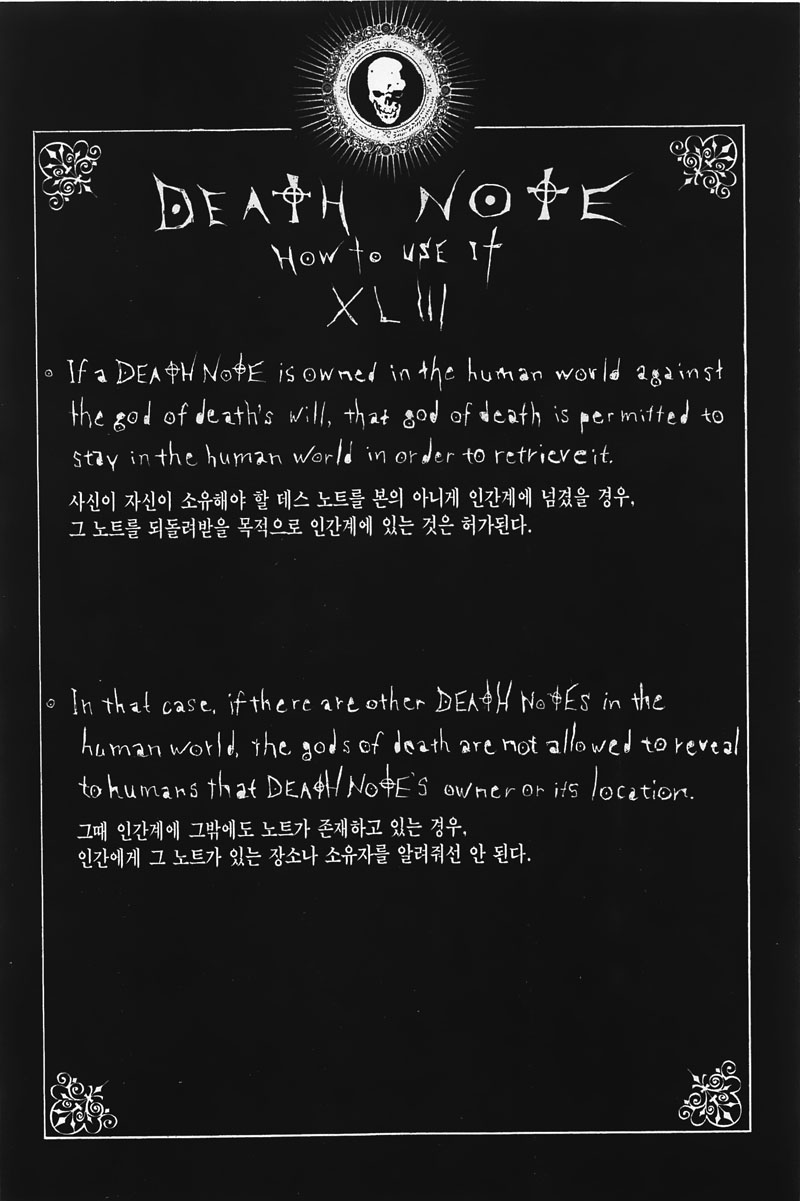 DEATH NOTE
HOW to USE It
XLIII
○ If a DEATH NOTE is owned in the human world against
the god of death's will, that god of death is permitted to
stay in the human world in order to retrieve it.
사신이 자신이 소유해야 할 데스 노트를 본의 아니게 인간계에 넘겼을 경우,
그 노트를 되돌려받을 목적으로 인간계에 있는 것은 허가된다.
○ In that case, if there are other DEATH NOTES in the
human world, the gods of death are not allowed to reveal
to humans that DEATH NOTE'S owner or its location.
그때 인간계에 그밖에도 노트가 존재하고 있는 경우,
인간에게 그 노트가 있는 장소나 소유자를 알려줘선 안 된다.